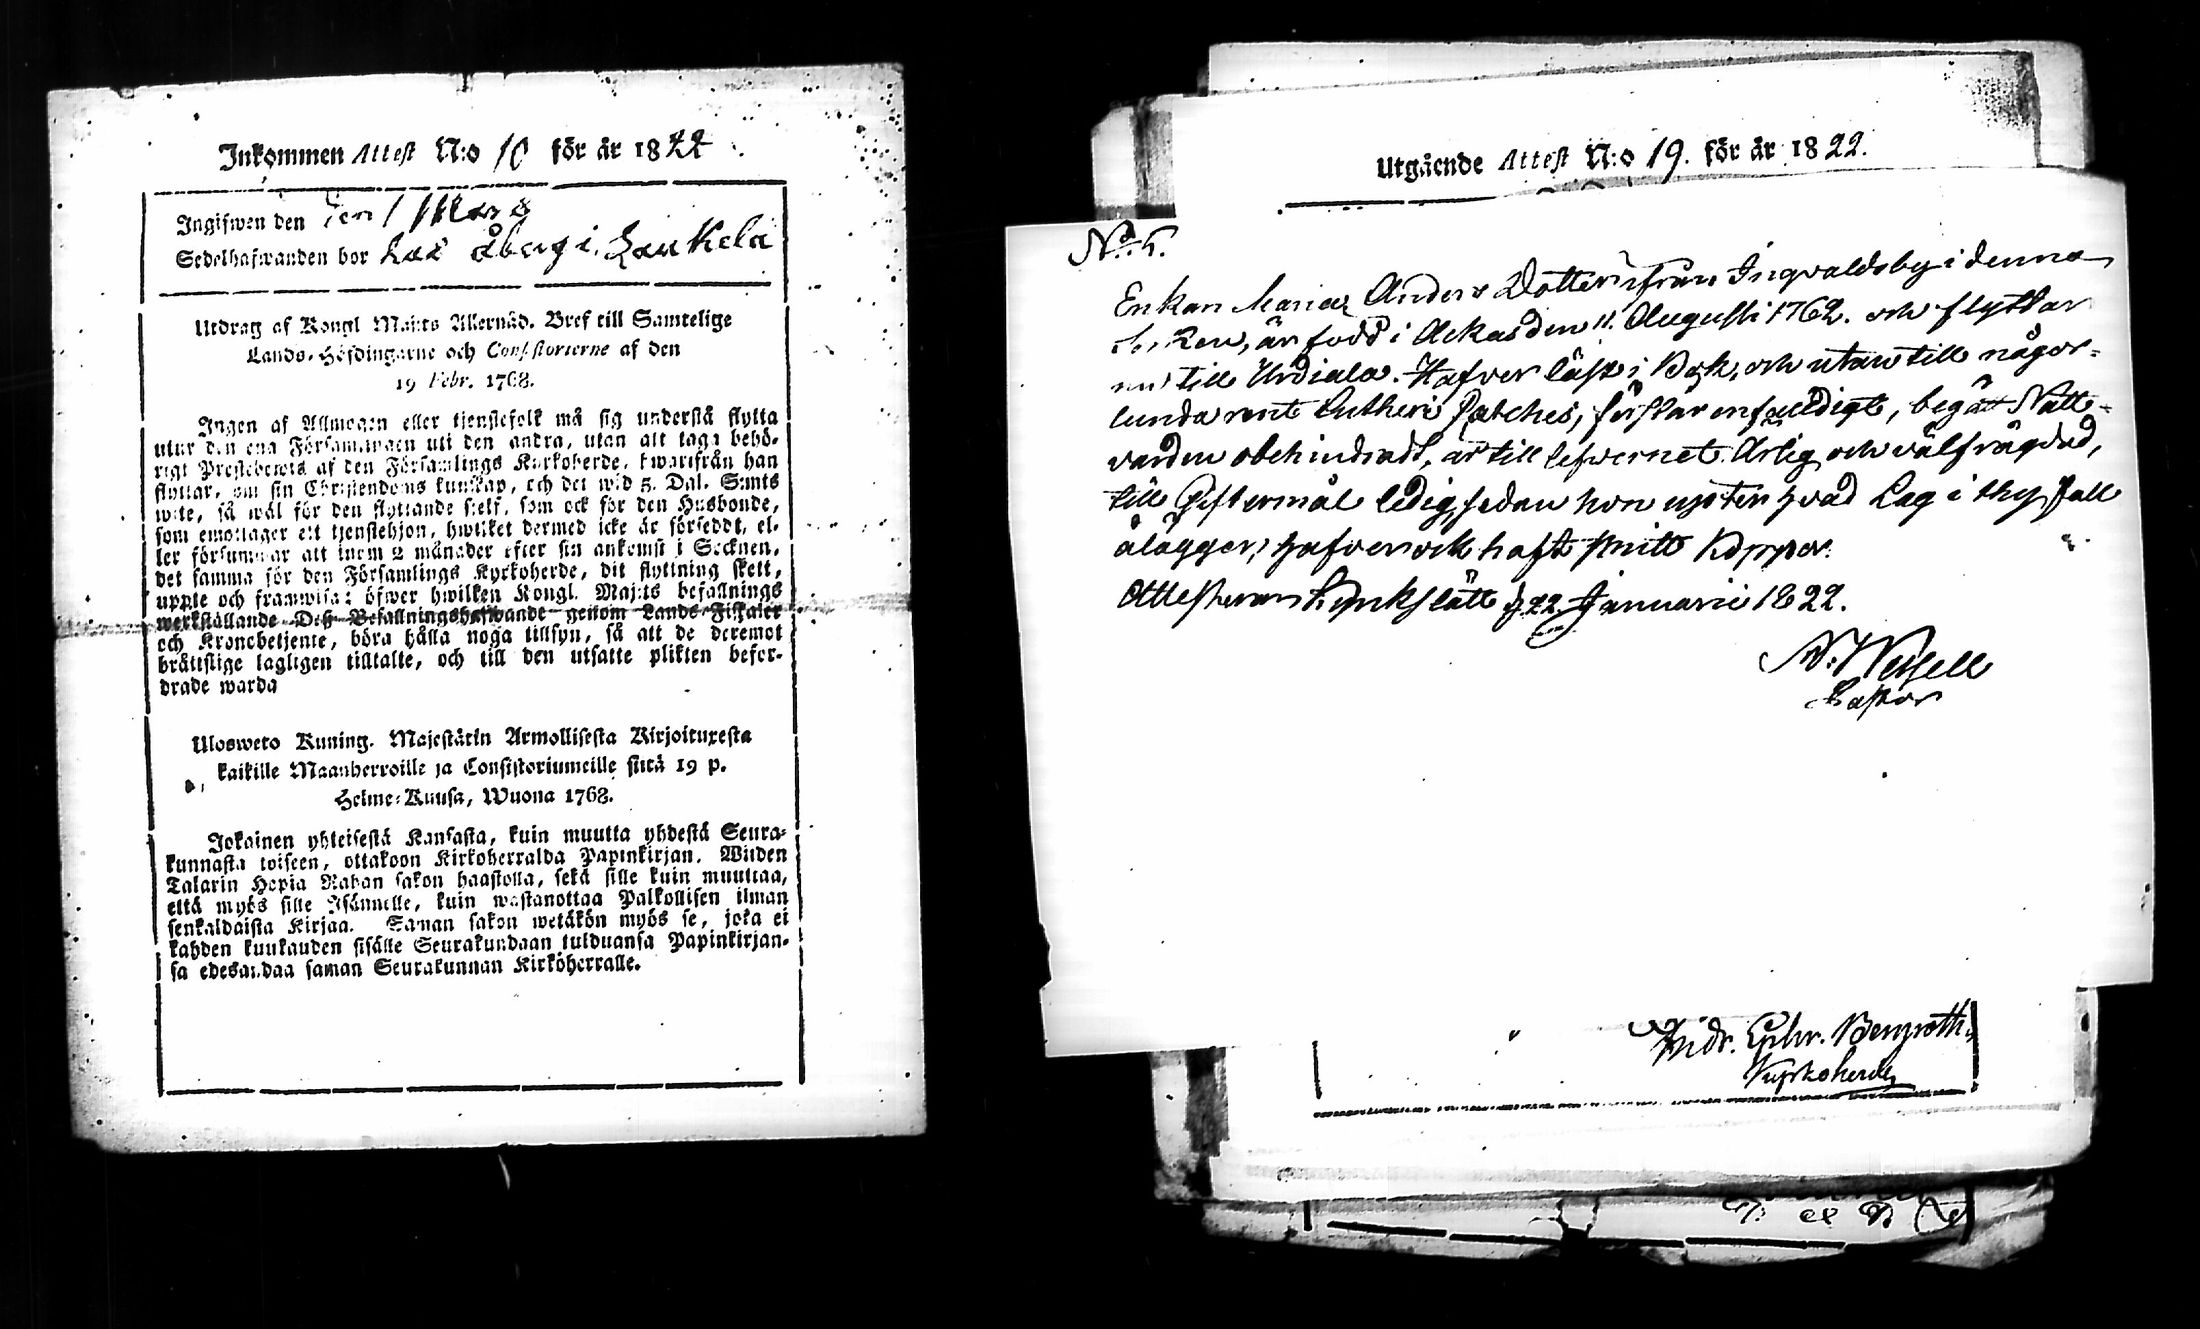 Inkommen Attest N:o 10 för år 1822
Ingifwen den den 1 Mars
Sedelhafwanden bor hos Åberg i Laukela
Utdrag af Kongl Maj:ts Allernåd. Bref till Samtelige
Lands-Höfdingarne och Consistorierne af den
19 Febr. 1768.
Ingen af Allmogen eller tjenstefolk må sig understå flytta
utur den ena Församlingen uti den andra, utan att taga behö-
rigt Prestebewis af den Församlings Kyrkoherde, hwarifrån han
flyttar, om sin Christendoms kunskap, och det wid 5. Dal. S:mts
wite, så wäl för den flyttande sielf, som ock för den Husbonde,
som emottager ett tjenstehjon, hwilket dermed icke är förseddt, el-
ler försummar att inom 2 månader efter sin ankomst i Socknen,
det samma för den Församlings Kyrkoherde, dit flyttning skett,
upple och framwisa: öfwer hwilken Kongl. Maj:ts befallnings
werkställande Deß Befallningshafwande genom Lands-Fiskaler
och Kronobetjente, böra hålla noga tillsyn, så att de deremot
bråttslige lagligen tilltalte, och till den utsatte plikten befor-
drade warda
Ulosweto Kuning. Majestätin Armollisesta Kirjoituxesta
kaikille Maanherroille ja Consistoriumeille siitä 19 p.
Helme-Kuusa, Wuona 1768.
Jokainen yhteisestä Kansasta, kuin muutta yhdestä Seura-
kunnasta toiseen, ottakoon Kirkoherralda Papinkirjan. Wiiden
Talarin Hopia Rahan sakon haastolla, sekä sille kuin muuttaa,
että myös sille Isännelle, kuin wastanottaa Palkollisen ilman
senkaldaista Kirjaa. Saman sakon wetäkön myös se, joka ei
kahden kuukauden sisälle Seurakundaan tulduansa Papinkirjan-
sa edesandaa saman Seurakunnan Kirkoherralle.
Utgående Attest N:o 19. för år 1822.
No. 5.
Enkan Maria Anders Dotter ifrån Ingvaldsby i denna
Socken, är född i Ackas den 11. Augusti 1762. och flyttar
nu till Urdiala. Hafver läst i Bok, och utan till någor-
lunda rent Lutheri Catches, förstår enfaldigt, begått Natt-
varden obehindradt, är till lefwernet ärlig och välfrägdad,
till Giftermål ledig, sedan hon upfyller hvad Lag i thy fall
ålägger, hafver ock haft Koppor.
Attesteras Kyrkslätt d. 22 Januarii 1822.
Pastor
Kyrkoherde